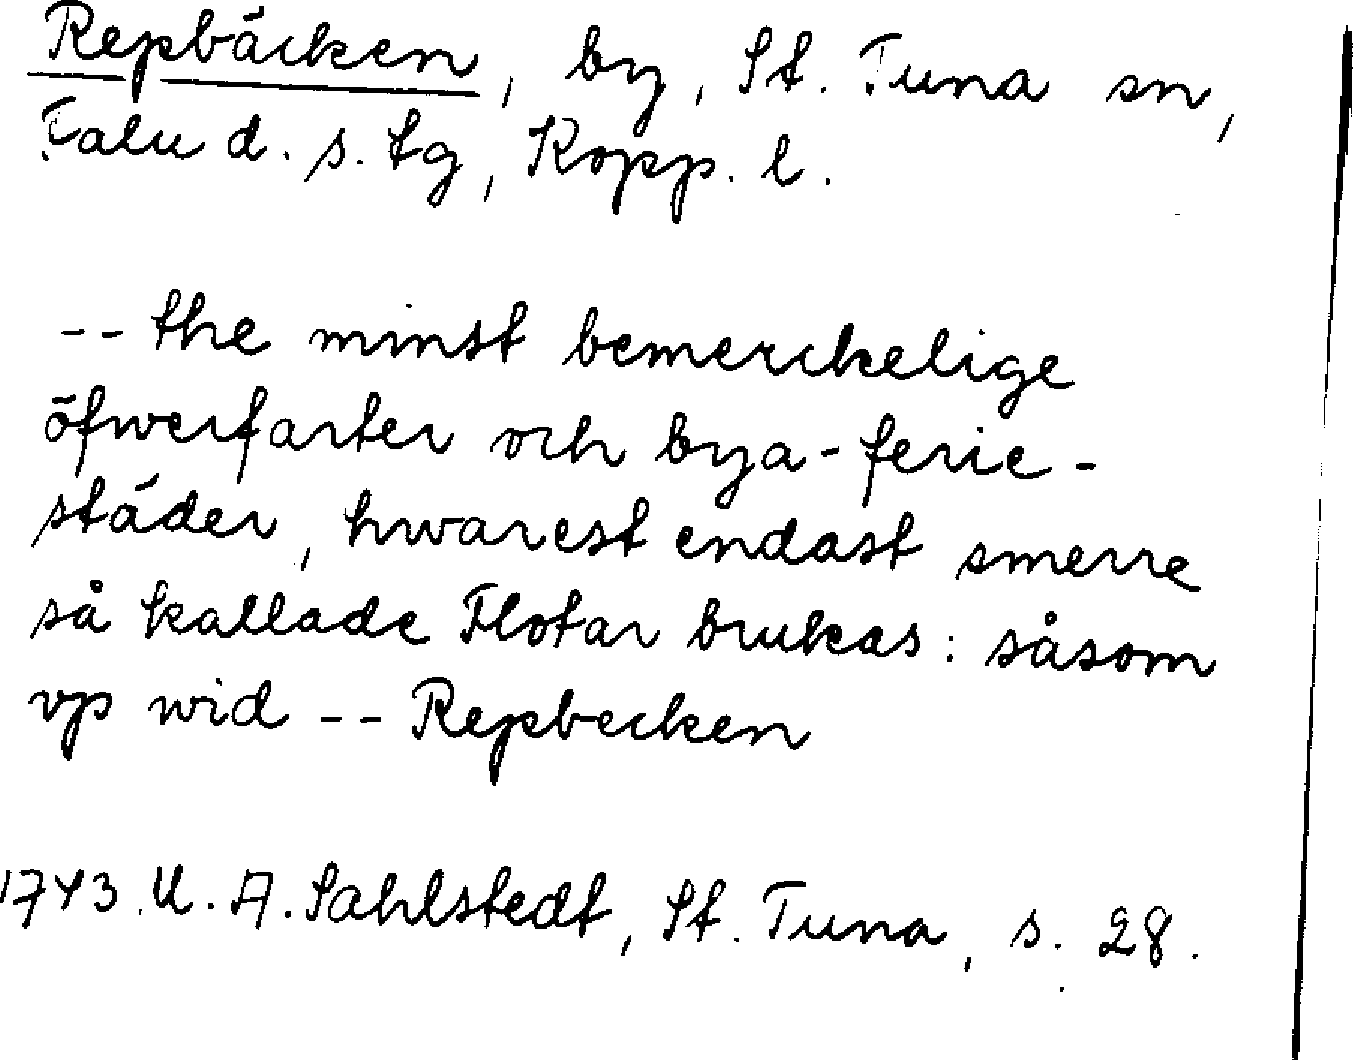 Repbäcken, by, St. Tuna sn,
Falu d. s. tg, Kopp. l.
-- the minst bemerckelige
öfwerfarter och bya-ferie-
städer, hwarest endast smerre
så kallade Flotar brukas: såsom
vp wid -- Repbecken
1743 U. A. Sahlstedt, St. Tuna, s. 28.